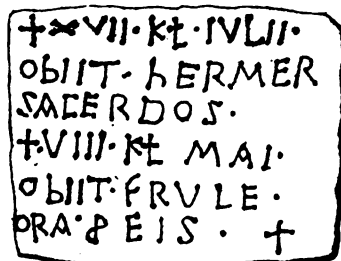 +XVII·KL·IVLII·
ObIIT·hERMER
SACERDOS·
+·VIII·KL MAI·
ObIIT·FRVLE·
ORA·P EIS· +